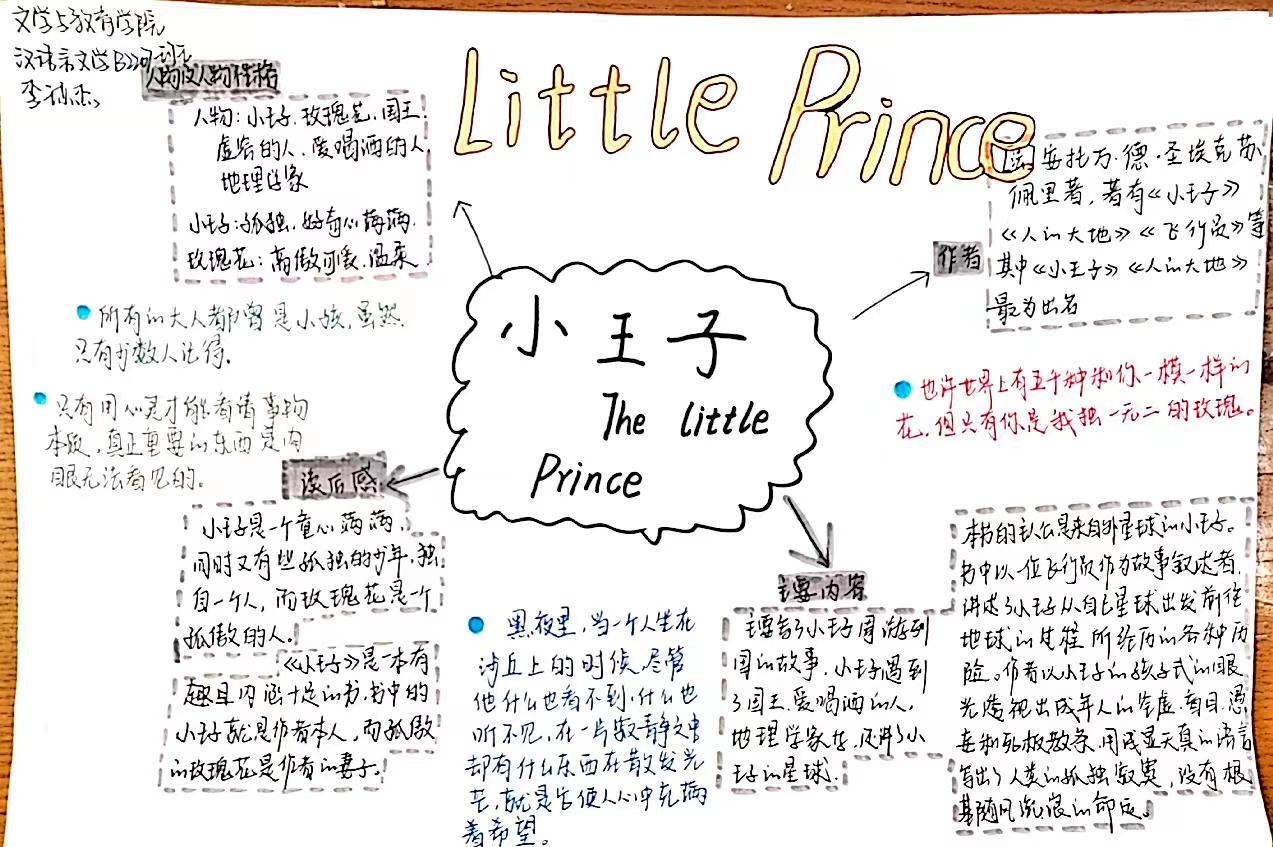 文学与教育学院
汉语言文学B220班
李
Little Prince
人物及人物性格
人物：小王子、玫瑰花、国王、
虚荣的人、爱喝酒的人、
地理学家
小王子：孤独、好奇心满满、
玫瑰花：高傲可爱、温柔
[法]安托万·德·圣埃克苏
佩里著，著有《小王子》
《人的大地》《飞行员》等
其中《小王子》《人的大地》
最为出名
作者
所有的大人都曾是小孩，虽然
只有少数人记得。
小王子
The little
Prince
也许世界上有五千种和你一模一样的
花，但只有你是我独一无二的玫瑰。
只有用心灵才能看清事物
本质，真正重要的东西是肉
眼无法看见的。
读后感
小王子是一个童心满满，
同时又有些孤独的少年，独
自一个人，而玫瑰花是一个
孤傲的人。
《小王子》是一本有
趣且内涵十足的书，书中的
小王子就是作者本人，而孤傲
的玫瑰花是作者的妻子。
黑夜里，当一个人坐在
沙丘上的时候，尽管
他什么也看不到，什么也
听不见，在一片寂静之中
却有什么东西在散发光
芒，就是它使人心中充满
着希望。
主要内容
主要写了小王子周游列
国的故事，小王子遇到
了国王、爱喝酒的人，
地理学家等，
王子的星球.
本书的主人公是来自外星球的小王子。
书中以一位飞行员作为故事叙述者，
讲述了小王子从自己星球出发前往
地球的过程 所经历的各种历
险。作者以小王子的孩子式的眼
光透视出成年人的空虚、盲目、愚
妄和死板教条，用浅显天真的语言
写出了人类的孤独寂寞，没有根
基随风流浪的命运。